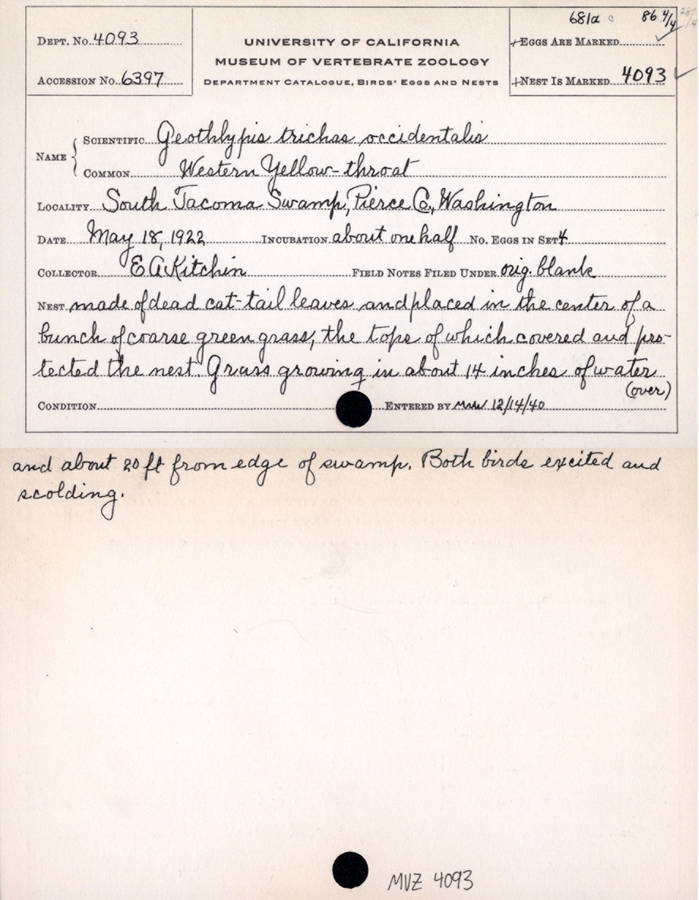 681a c 86 4/4
DEPT. NO. 4093
UNIVERSITY OF CALIFORNIA
+EGGS ARE MARKED
MUSEUM OF VERTEBRATE ZOOLOGY
ACCESSION NO. 6397
DEPARTMENT CATALOGUE, BIRDS' EGGS AND NESTS
+NEST IS MARKED 4093 ✓
NAME { SCIENTIFIC Geothlypis trichas occidentalis
COMMON Western Yellow-throat
LOCALITY South Tacoma Swamp, Pierce Co., Washington
DATE May 18, 1922 INCUBATION about one half NO. EGGS IN SET 4
COLLECTOR E A Kitchin FIELD NOTES FILED UNDER orig. blank
NEST made of dead cat-tail leaves and placed in the center of a
bunch of coarse green grass, the tops of which covered and pro-
tected the nest. Grass growing in about 14 inches of water
(over)
CONDITION ENTERED BY mw 12/14/40
and about 20 ft from edge of swamp. Both birds excited and
scolding.
MVZ 4093